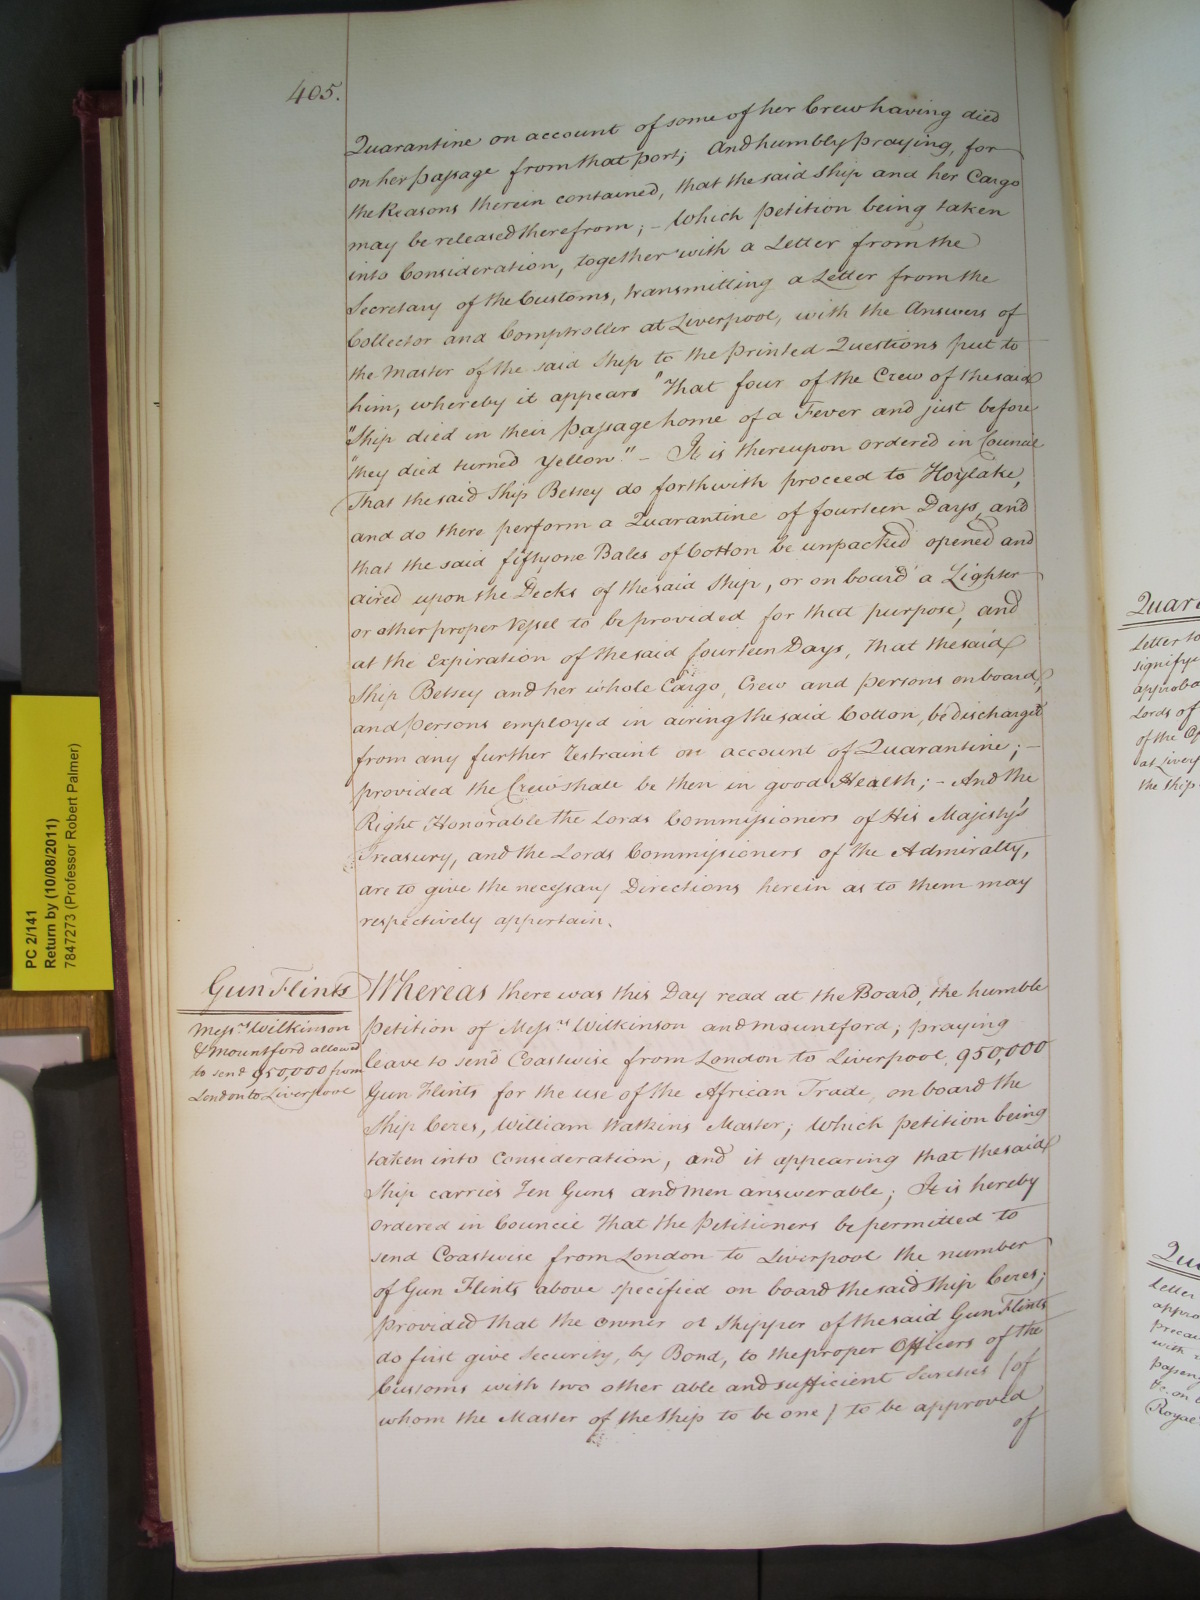 405.
Quarantine on account of some of her Crew having died
on her passage from that port; And humbly praying, for
the Reasons therein contained, that the said Ship and her Cargo
may be released therefrom; – Which petition being taken
into Consideration, together with a Letter from the
Secretary of the Customs, transmitting a Letter from the
Collector and Comptroller at Liverpool, with the Answers of
the Master of the said Ship to the printed Questions put to
him, whereby it appears "That four of the Crew of the said
"Ship died in their passage home of a Fever and just before
"they died turned Yellow." – It is thereupon ordered in Council
That the said Ship Betsey do forthwith proceed to Hoylake,
and do there perform a Quarantine of fourteen Days, and
that the said fifty one Bales of Cotton be unpacked opened and
aired upon the Decks of the said Ship, or on board a Lighter
or other proper Vessel to be provided for that purpose, and
at the Expiration of the said fourteen Days, That the said
Ship Betsey and her whole Cargo, Crew and persons on board,
and persons employed in airing the said Cotton, be discharged
from any further Restraint on account of Quarantine; –
provided the Crew shall be then in good Health; – And the
Right Honorable the Lords Commissioners of His Majesty's
Treasury, and the Lords Commissioners of the Admiralty,
are to give the necessary Directions herein as to them may
respectively appertain.
Gun Flints
Messrs Wilkinson
& Mountford allowed
to send 950,000 from
London to Liverpool
Whereas there was this Day read at the Board, the humble
petition of Messrs Wilkinson and Mountford; praying
leave to send Coastwise from London to Liverpool 950,000
Gun Flints for the use of the African Trade, on board the
Ship Ceres, William Watkins Master; Which petition being
taken into Consideration, and it appearing that the said
Ship carries Ten Guns and Men answerable; It is hereby
ordered in Council That the Petitioners be permitted to
send Coastwise from London to Liverpool the number
of Gun Flints above specified on board the said Ship Ceres;
provided that the Owner or Shipper of the said Gun Flints
do first give Security, by Bond, to the proper Officers of the
Customs with two other able and sufficient Sureties (of
whom the Master of the Ship to be one) to be approved
of
PC 2/141
Return by (10/08/2011)
7847273 (Professor Robert Palmer)
Letter to
signifyi
Lords of
at Liverp
the Ship
Letter
with
Royal